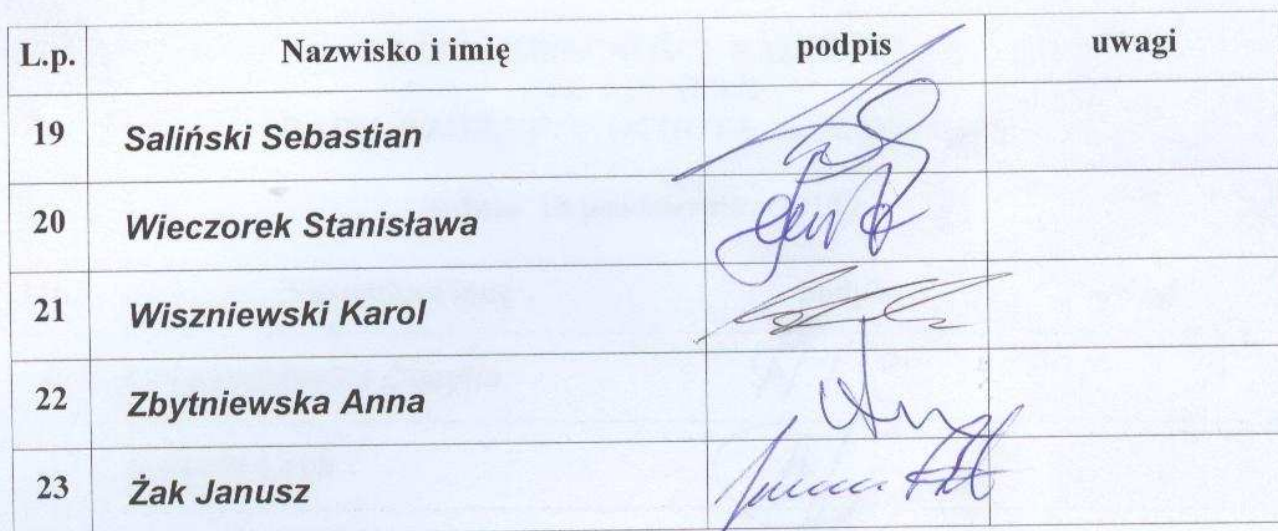 L.p. Nazwisko i imię podpis uwagi
19 Saliński Sebastian
20 Wieczorek Stanisława
21 Wiszniewski Karol
22 Zbytniewska Anna
23 Żak Janusz